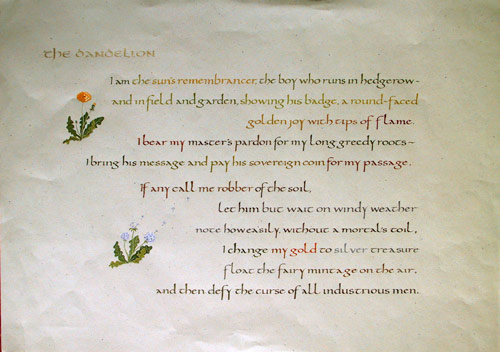 the dandelion
I am the sun's remembrancer, the boy who runs in hedgerow–
and in field and garden, showing his badge, a round-faced
golden joy with tips of flame.
I bear my master's pardon for my long greedy roots–
I bring his message and pay his sovereign coin for my passage.
If any call me robber of the soil,
let him but wait on windy weather
note how easily, without a mortal's toil,
I change my gold to silver treasure
float the fairy mintage on the air,
and then defy the curse of all industrious men.